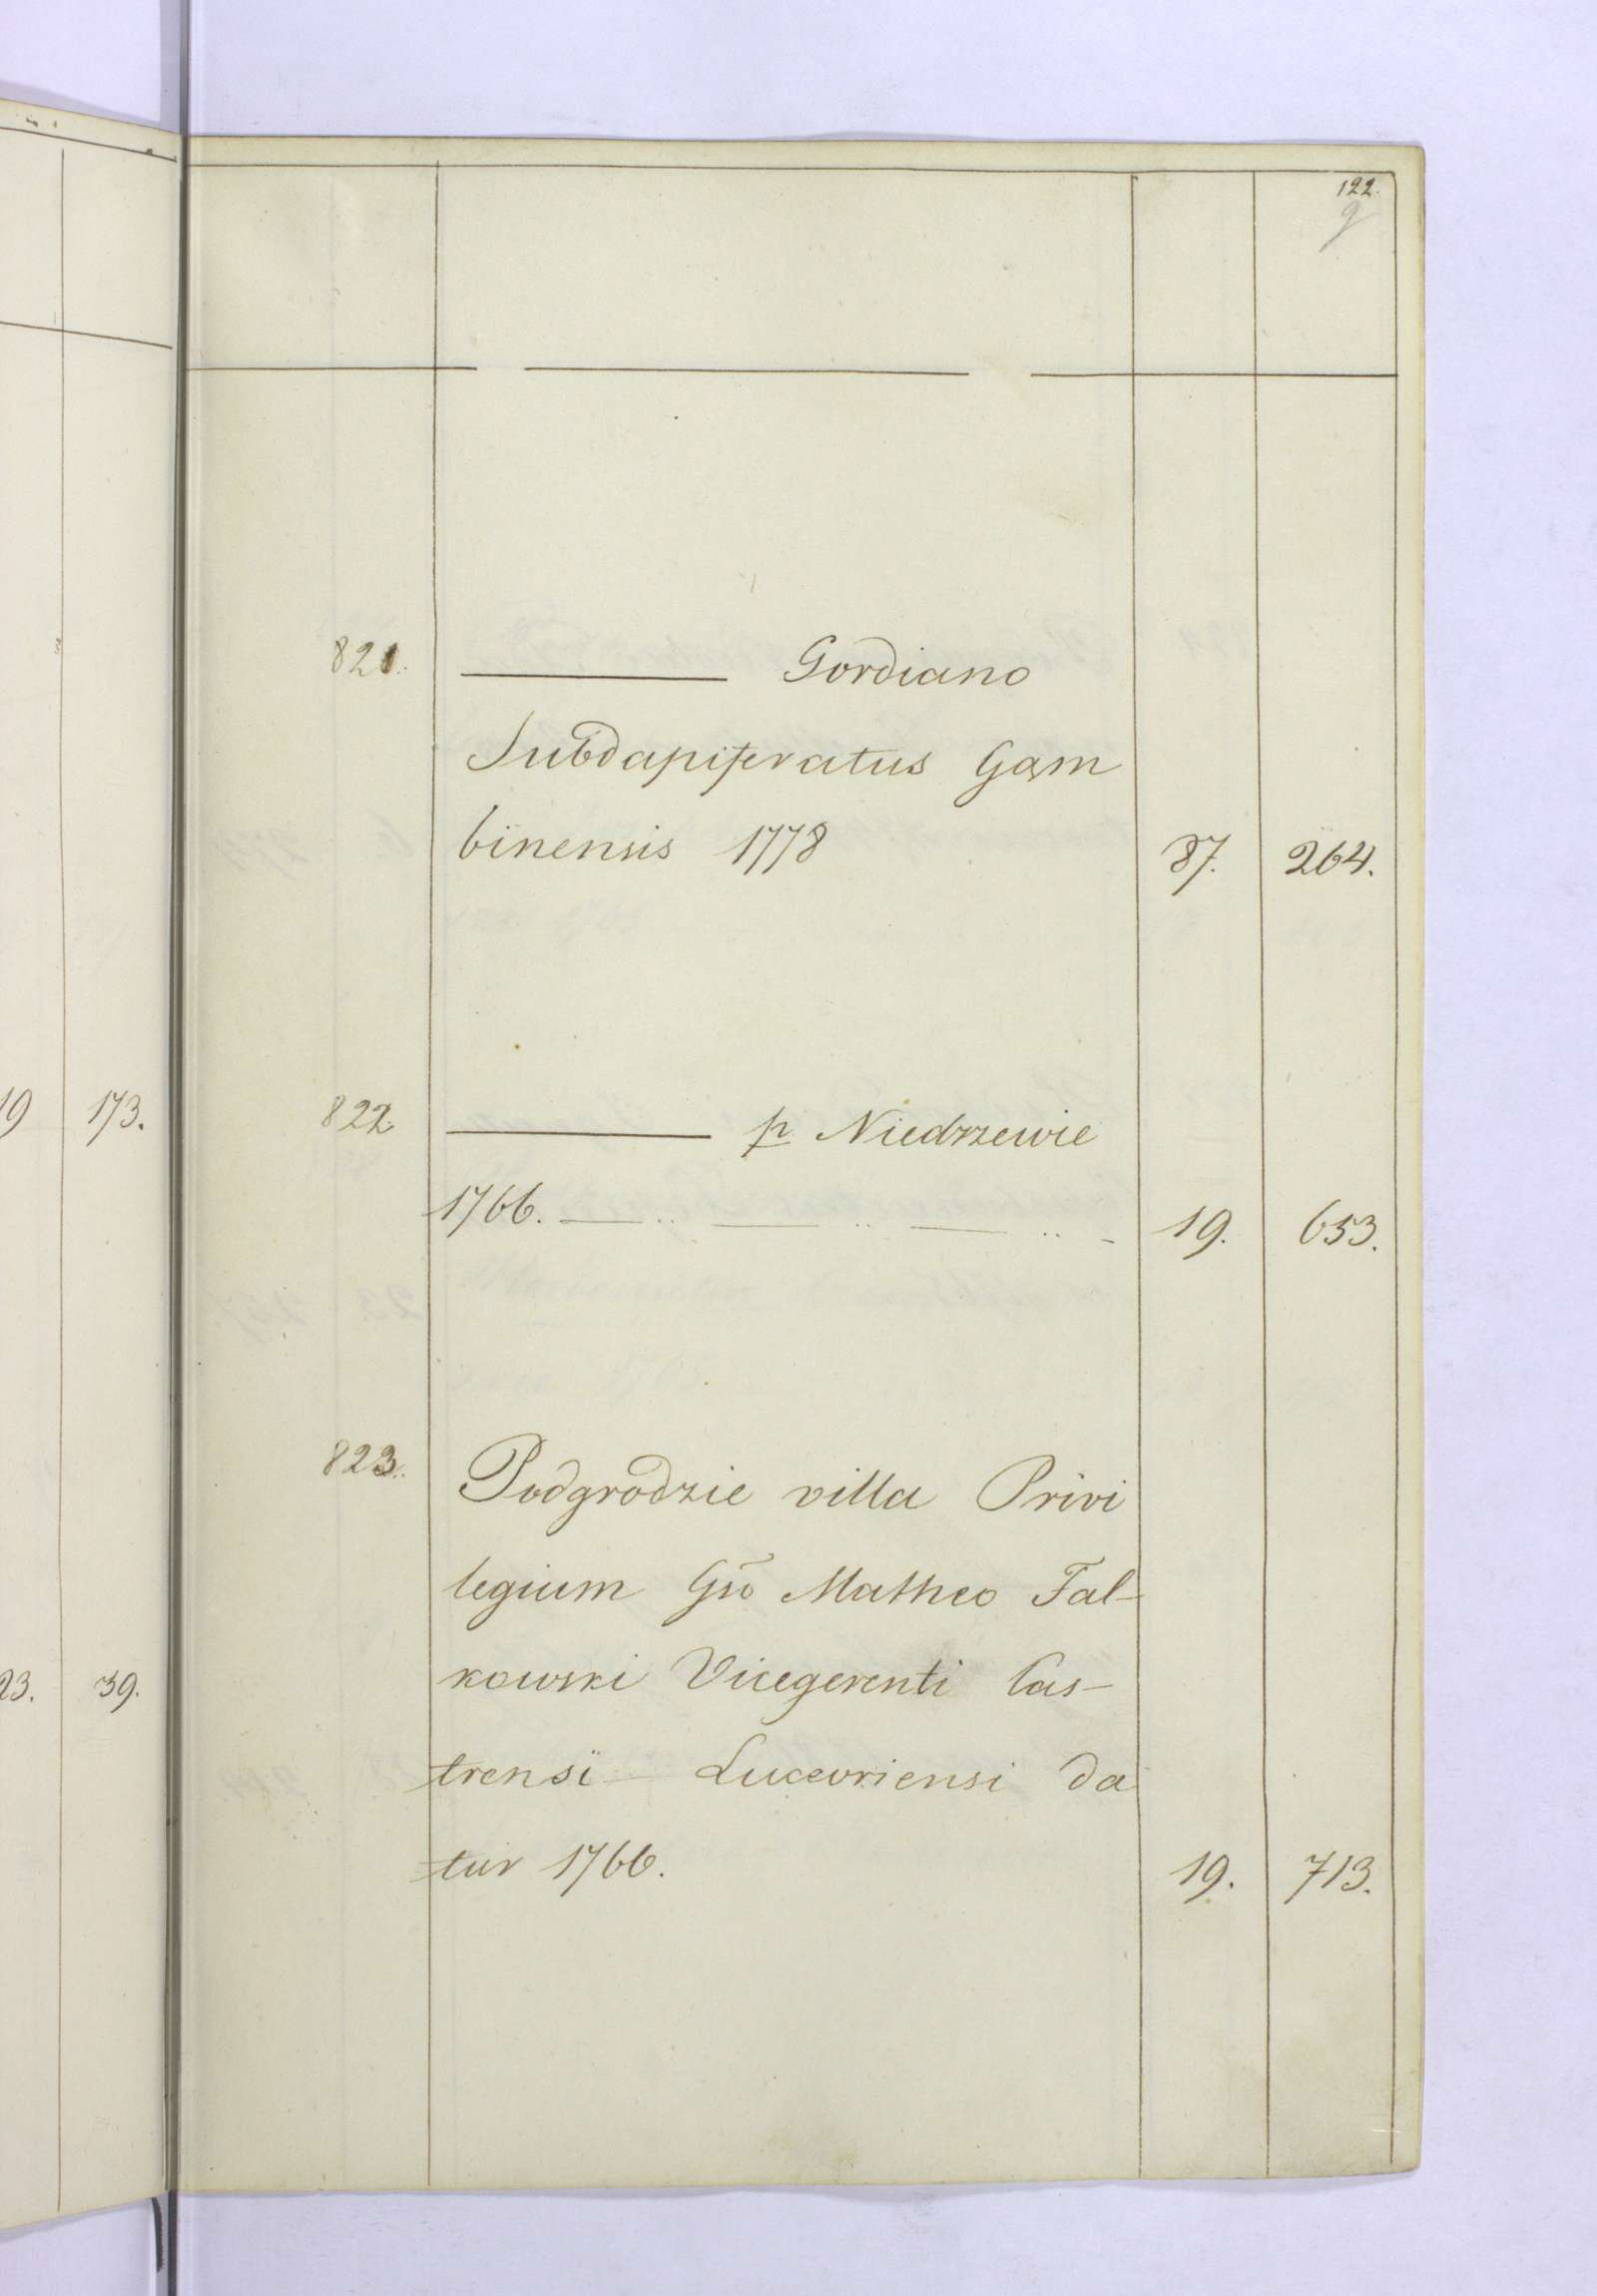 122.
821. ——— Gordiano
Subdapiferatus Gąm
binensis 1778 87. 264.
19 173. 822 ——— p Niedrzewie
1766. — .. — .. — .. - 19. 653.
823. Podgrodzie villa Privi
legium Gn̄o Matheo Fal-
23. 39. kowski Vicegerenti Cas-
trensi Luceoriensi da
tur 1766. 19. 713.